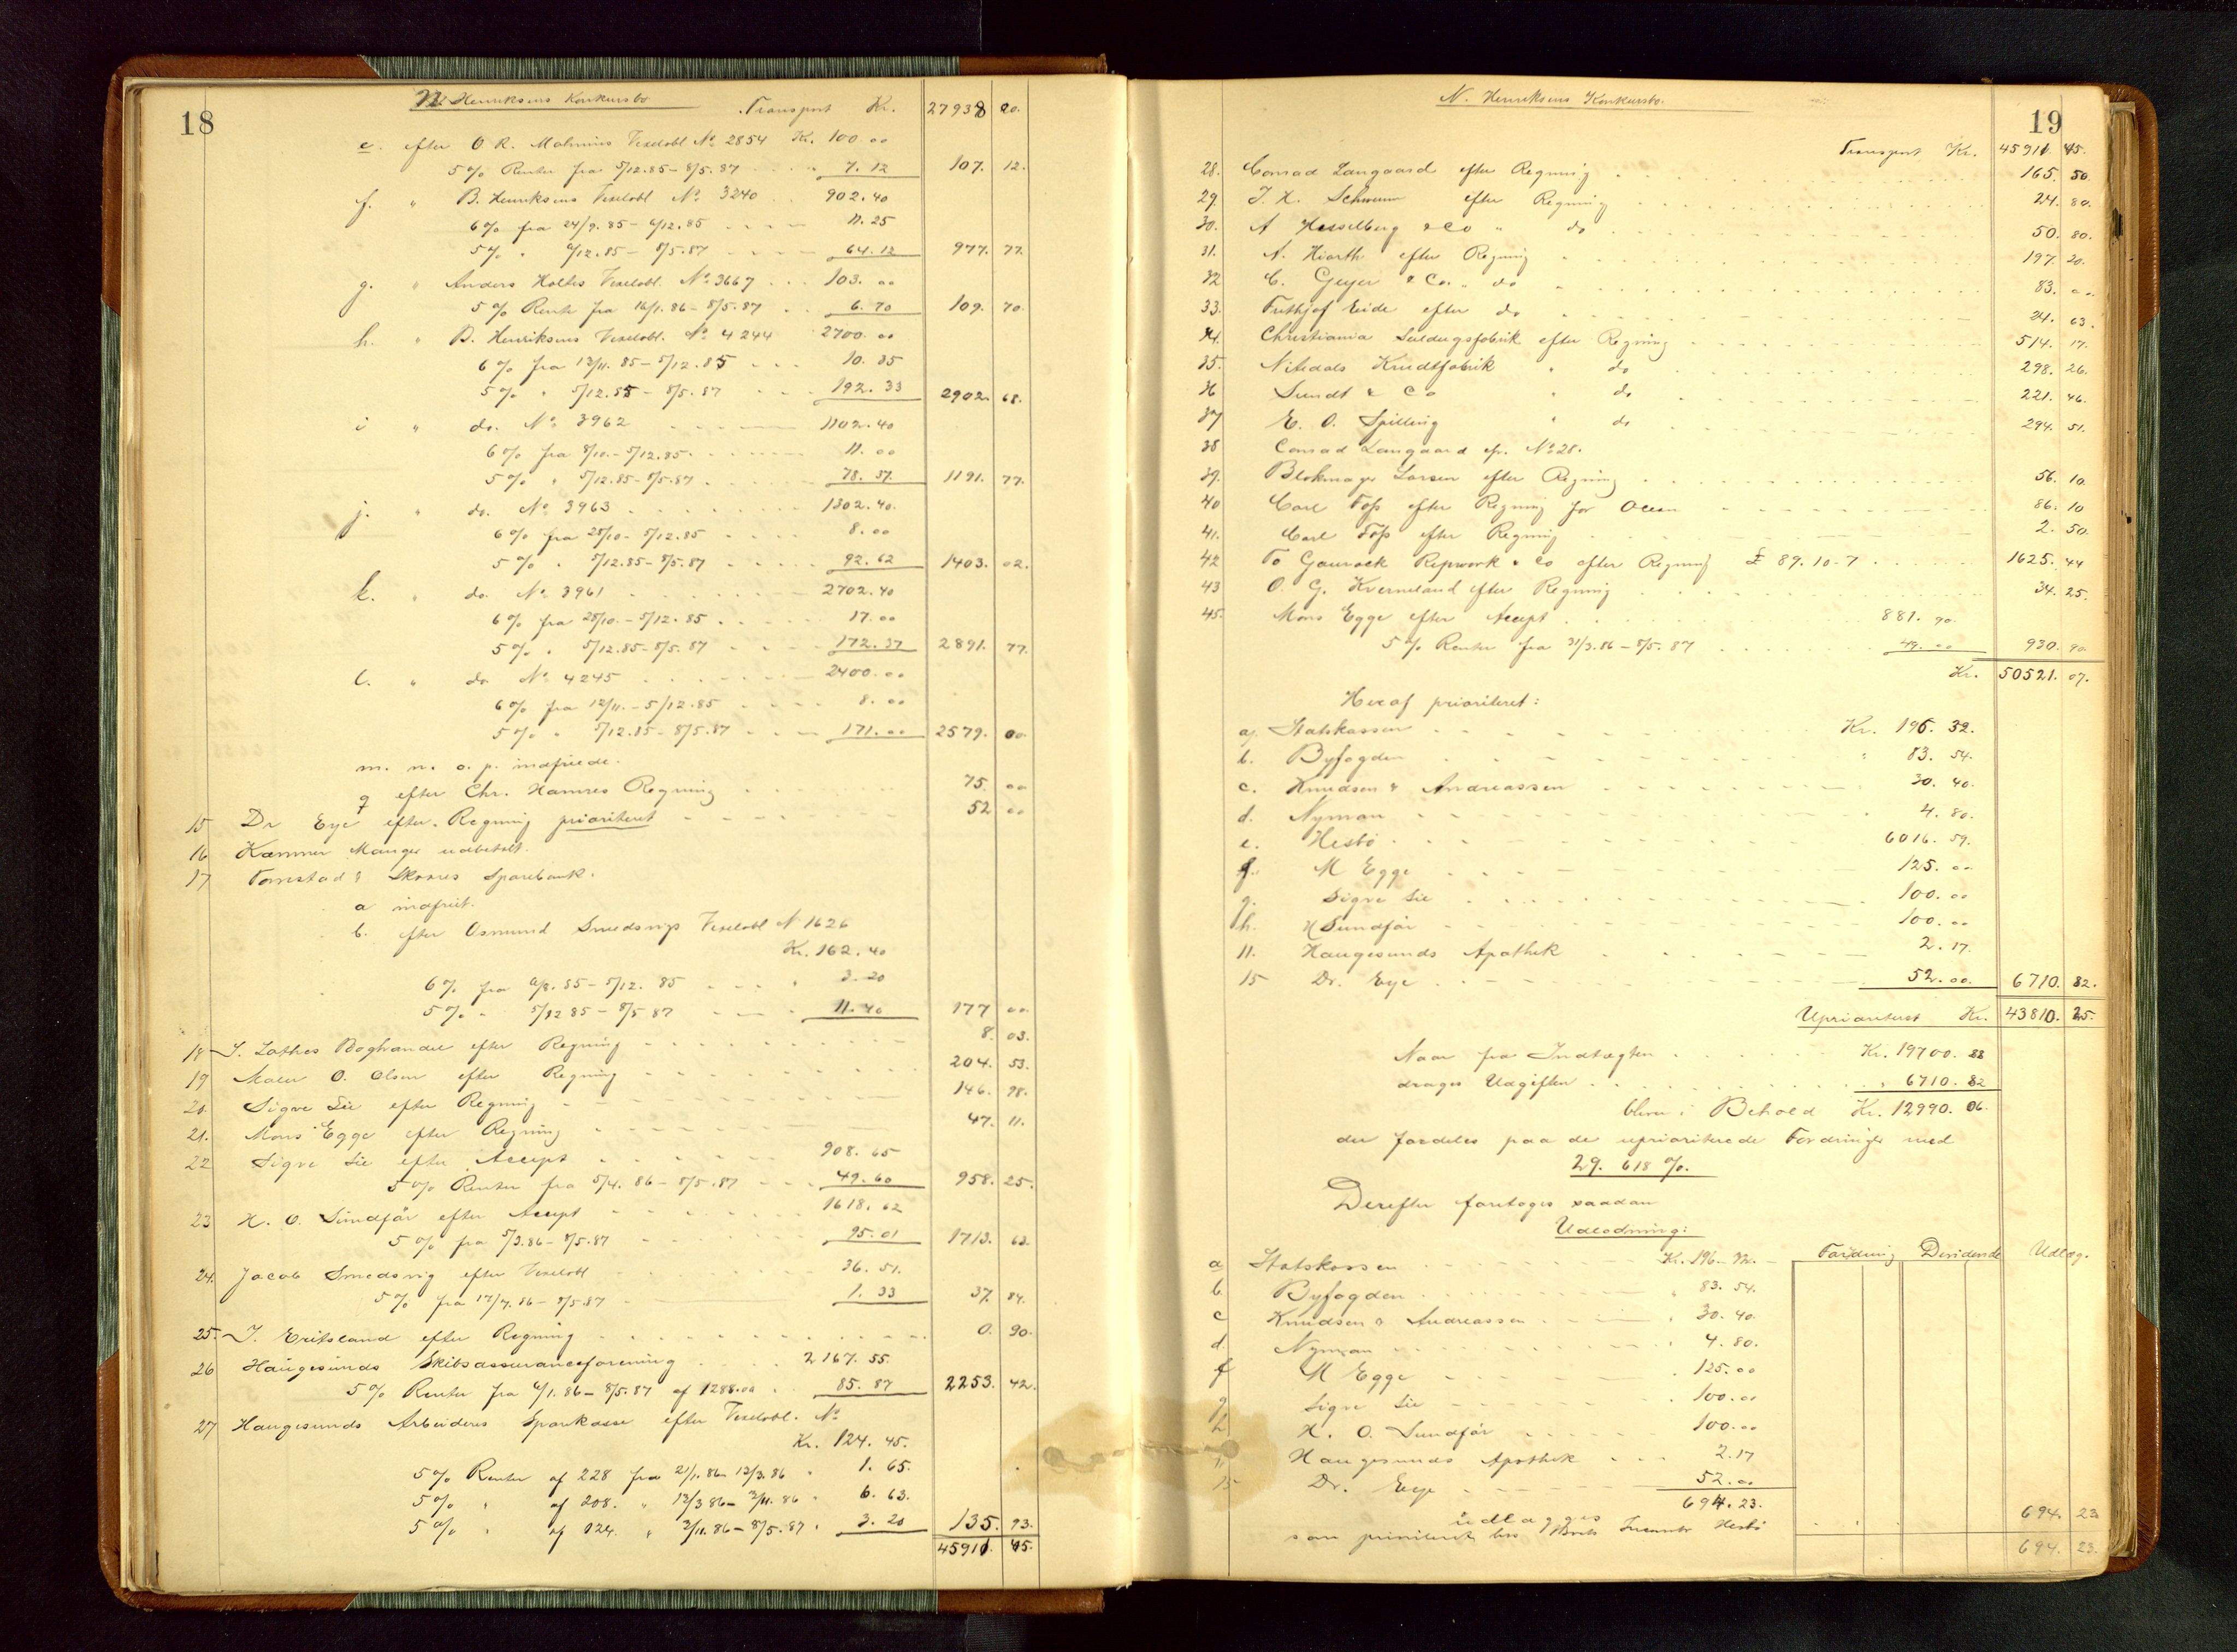 18
N. Henriksens Konkursbo
Transport Kr. 27938 20.
e. efter O R. Malmins Vexelobl No 2854 Kr. 100.00
5% Renter fra 5/12.85 - 8/5.87 7.12 107. 12.
f. " B. Henriksens Vexelobl No 3240 902.40
6% fra 24/9.85 - 5/12.85 11.25
5% " 5/12.85 - 8/5.87 64.12 977. 77.
g. " Anders Holtes Vexelobl. No 3667 103.00
5% Rente fra 16/1.86 - 8/5.87 6.70 109. 70.
h. " B. Henriksens Vexelobl. No 4244 2700.00
6% fra 13/11.85 - 5/12.85 10.35
5% " 5/12.85 - 8/5.87 192.33 2902. 68.
i " do. No 3962 1102.40
6% fra 8/10. - 5/12.85. 11.00
5% " 5/12.85 - 8/5.87 78.37. 1191. 77.
j. " do. No 3963 1302.40.
6% fra 28/10 - 5/12.85 8.00
5% " 5/12.85 - 8/5.87 92.62 1403. 02.
k. " do. No 3961 2702.40
6% fra 28/10. - 5/12.85 17.00
5% " 5/12.85 - 8/5.87 172.37 2891. 77.
l. " do No 4245 2400.00
6% fra 12/11. - 5/12.85 8.00
5% " 5/12.85 - 8/5.87 171.00 2579. 00.
m. n. o. p. indfriede.
q efter Chr. Hamres Regning 75. 00
15 Dr Eye efter Regning prioriteret 52 00
16 Kæmner Mauger udbetalt.
17 Tornstad & Skaares Sparebank.
a indfriet.
b. efter Osmund Smedsvigs Vexelobl No 1626
Kr. 162.40
6% fra 6/8.85 - 5/12.85 3.20
5% " 5/12 85 - 8/5 87 11.40 177 00
18 J. Lothes Boghandel efter Regning 8. 03.
19 Maler O. Olsen efter Regning 204. 53.
20. Sigve Lie efter Regning 146. 98.
21. Mons Egge efter Regning 47. 11.
22 Sigve Lie efter Accept 908.65
5% Renter fra 5/4.86 - 8/5.87 49.60 958. 25.
23 H. O. Sundfør efter Accept 1618.62
5% fra 5/3.86 - 8/5.87 95.01 1713. 63.
24. Jacob Smedsvig efter Vexelobl 36.51.
5% fra 17/7.86 - 8/5.87 1.33 37. 84.
25. J. Eritsland efter Regning 0. 90.
26 Haugesunds Skibsassuranceforening 2167.55.
5% Renter fra 6/1.86 - 8/5.87 af 1288.00 85.87 2253. 42.
27 Haugesunds Arbeideres Sparekasse efter Vexelobl. No
Kr. 124.45.
5% Renter af 228 fra 21/1.86 - 13/3.86 " 1.65.
5% " af 208. " 13/3 86 - 2/11.86 " 6.63.
5% " af 124. " 2/11.86 - 8/5.87 " 3.20 135. 93.
45911. 45.
19
N. Henriksens Konkursbo.
Transport Kr. 45911. 45.
28. Conrad Langaard efter Regning 165. 50.
29. J. H. Schwenn efter Regning 24. 80.
30. A Hesselberg & Co " do 50. 80.
31. A. Hiorth efter Regning 197. 20.
32 C. Geyer & Co. " do 83. 00.
33. Frithjof Eide efter do 24. 63.
34. Christiania Seildugsfabrik efter Regning 514. 17.
35. Nitedals Krudtfabrik " do 298. 26.
36 Sundt & Co " do 221. 46.
37 E. O. Spilling " do 294. 51.
38 Conrad Langaard cfr. No 28.
39. Blokmager Larsen efter Regning 56. 10.
40 Carl Foss efter Regning for Ocean 86. 10
41. Carl Foss efter Regning 2. 50.
42 To Gourock Ropework & Co efter Regning £ 89.10.7 1625. 44
43 O. G. Kverneland efter Regning 34. 25.
45. Mons Egge efter Accept 881.90.
5% Renter fra 31/3.86 - 8/5.87 49.00 930. 90.
Kr. 50521. 07.
Heraf prioriteret:
a. Statskassen Kr. 196.32.
b. Byfogden " 83.54.
c. Knudsen & Andreassen 30.40.
d. Nyman 4.80.
e. Hesbø 6016.59.
f. M Egge 125.00
g. Sigve Lie 100.00
h. H Sundfør 100.00
11. Haugesunds Apothek 2.17.
15 Dr. Eye 52.00. 6710. 82.
Uprioriteret Kr. 43810. 25.
Naar fra Indtægten Kr. 19700.88
drages Udgiften " 6710.82
bliver i Behold Kr. 12990.06.
der fordeles paa de uprioriterede Fordringer med
29.618%.
Derefter foretoges saadan
Udlodning:
Fordring Dividende Udlæg.
a Statskassen Kr. 196.32.
b Byfogden " 83.54.
c Knudsen & Andreassen " 30.40.
d. Nyman " 4.80.
f M Egge 125.00
g Sigve Lie 100.00
h H. O. Sundfør 100.00
11. Haugesunds Apothek 2.17
15 Dr. Eye 52.00
694.23.
udlægges
som prioriteret hos Boets Hesbø 694. 23
694. 23.